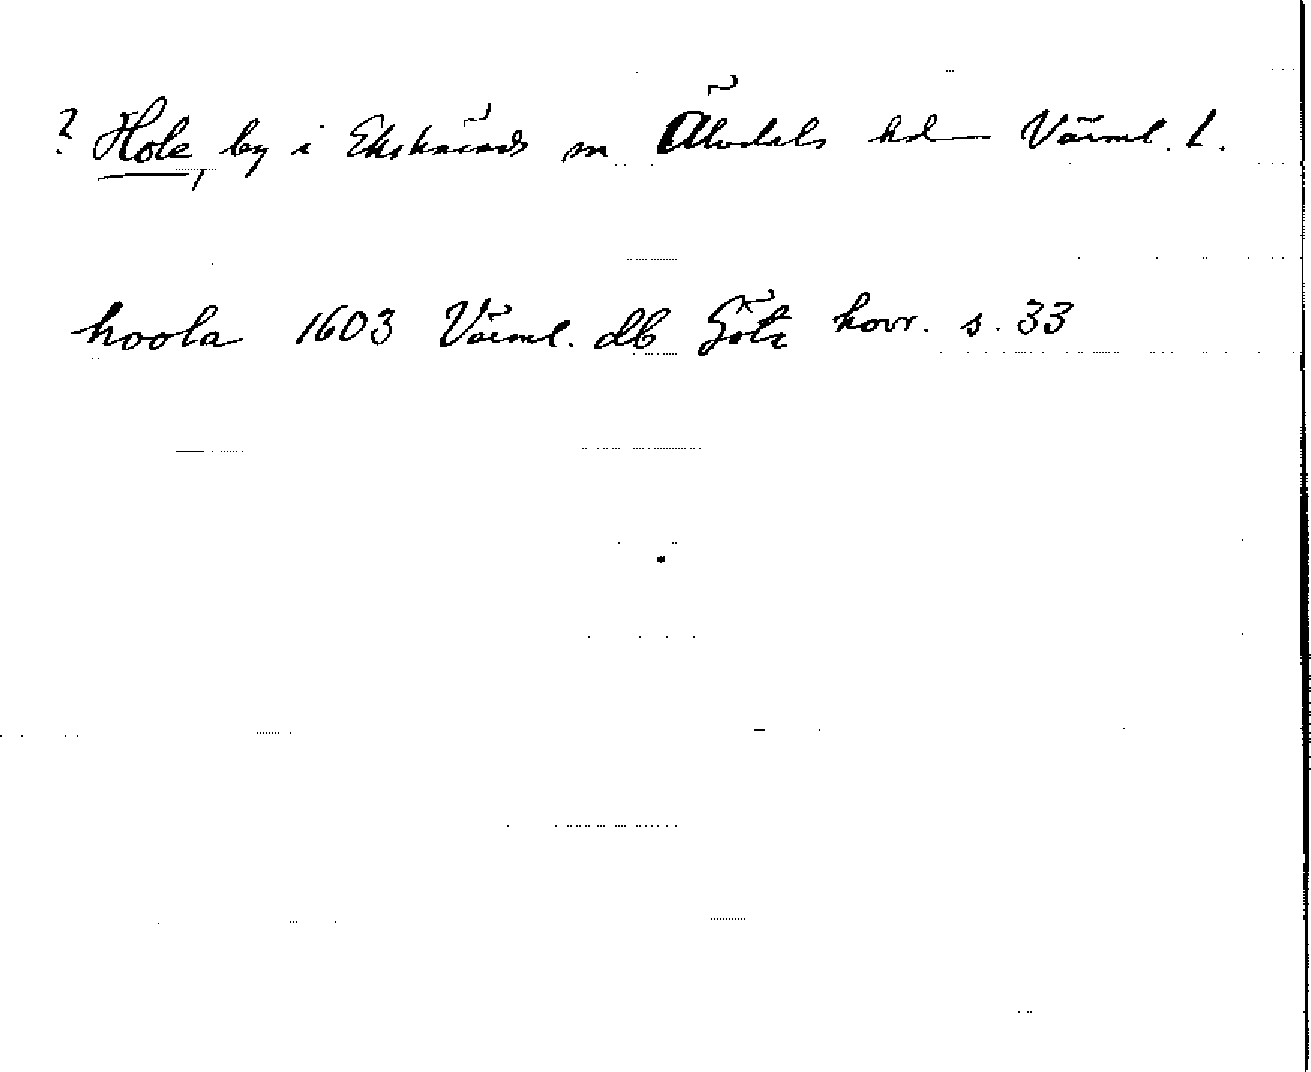 ? Hole, by i Ekshärads sn Älvdals hd Värml. l.
hoola 1603 Värml. db Göta hovr. s. 33